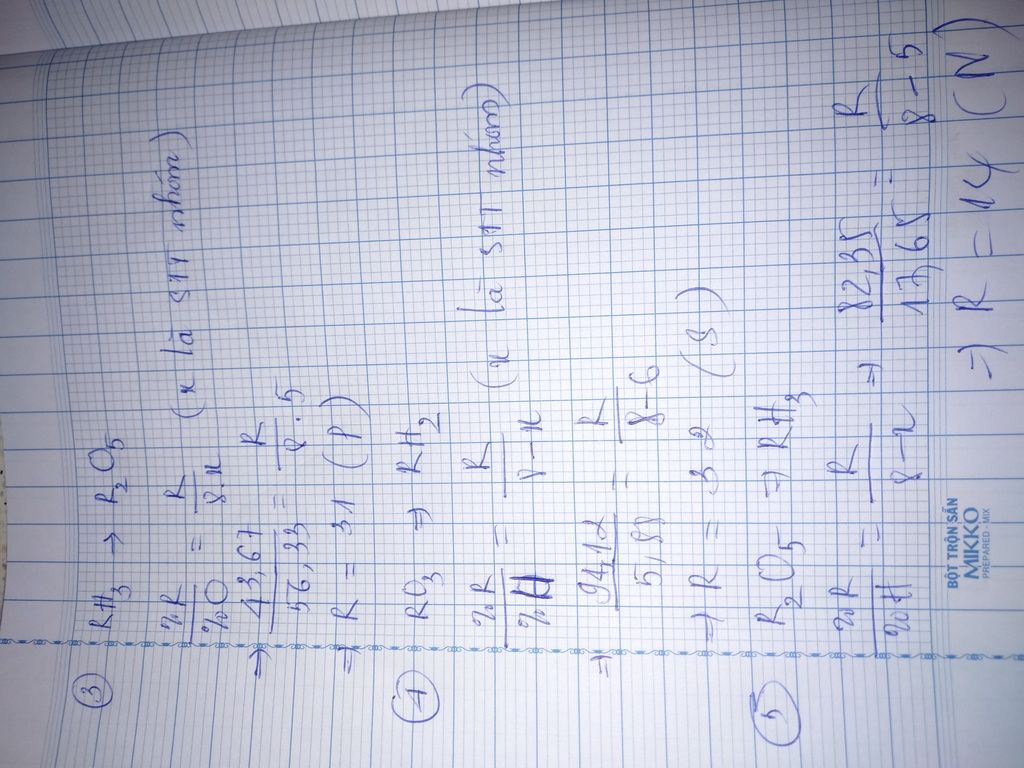 ③ RH₃ → R₂O₅
%R/%O = R/8.x (x là STT nhóm)
⇒ 43,67/56,33 = R/8.5
⇒ R = 31 (P)
④ RO₃ ⇒ RH₂
%R/%H = R/8-x (x là STT nhóm)
⇒ 94,12/5,88 = R/8-6
⇒ R = 32 (S)
⑤ R₂O₅ ⇒ RH₃
%R/%H = R/8-x ⇒ 82,35/17,65 = R/8-5
⇒ R = 14 (N)
BỘT TRỘN SẴN
MIKKO
PREPARED - MIX